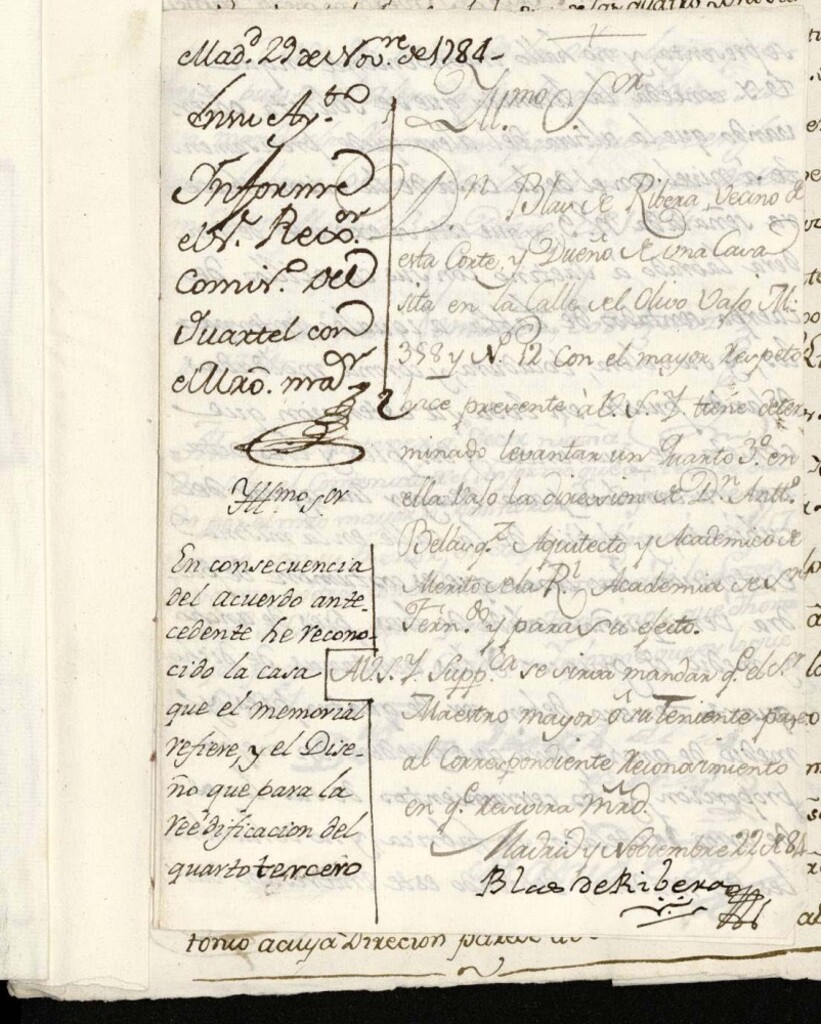 Mad.d 29 de Nov.re de 1784-
En su Ay.to
Informe
el S.r Rex.or
Comis.o del
Quartel con
el Mro. mayr
Yll.mo Sor
En consecuencia
del acuerdo ante-
cedente he recono-
cido la casa
que el memorial
refiere, y el Dise-
ño que para la
reedificacion del
quarto tercero
Yll.mo S.or
Dn Blas de Ribera, Vecino de
esta Corte, y Dueño de una Casa
sita en la Calle del Olivo Vajo M.-
358 y N.o 12 Con el mayor Respeto
hace presente à V. S. Y. tiene deter-
minado levantar un Quarto 3.o en
ella Vajo la direccion de D.n Antt.o
Aquitecto y Academico de
Merito de la R.l Academia de Sn
Fern.do y para su efecto.
A V.S.Y. Supp.ca se sirva mandar q.e el S.r
Maestro mayor ò su teniente pase
al Correspondiente Reconosimiento
en q.e Mrd.
Madrid y Nobiembre 22 de 84
Blas de Ribera
tonio acuya Direcion parece